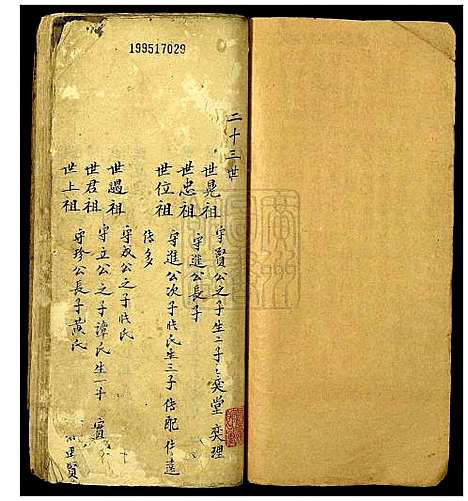 199517029
二十三世
世晃祖 守賢公之子生二子：奕堂 奕理
世忠祖 守進公長子
世位祖 守進公次子戚氏生三子 传配 仕遠
传多
世過祖 守成公之子戚氏
世君祖 守立公之子譚氏生一子 寅
世上祖 守珍公長子黄氏
正賢